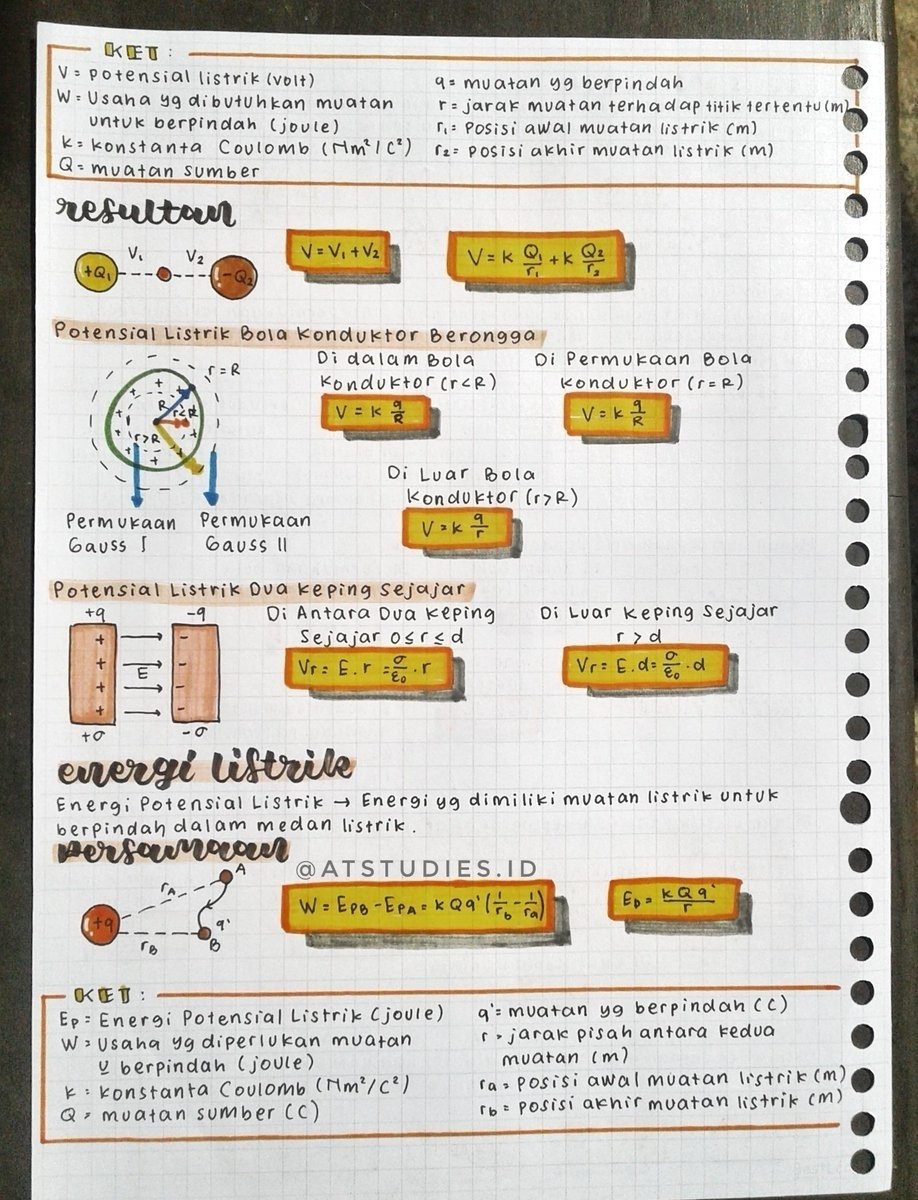 KET:
V = potensial listrik (volt)
W = Usaha yg dibutuhkan muatan
untuk berpindah (joule)
K = konstanta Coulomb (Nm²/C²)
Q = muatan sumber
q = muatan yg berpindah
r = jarak muatan terhadap titik tertentu (m)
r₁ = posisi awal muatan listrik (m)
r₂ = posisi akhir muatan listrik (m)
resultan
+Q₁ V₁ V₂ -Q₂
V = V₁ + V₂
V = K Q₁/r₁ + K Q₂/r₂
Potensial Listrik Bola Konduktor Berongga
r = R
R
r<R
r>R
Permukaan
Gauss I
Permukaan
Gauss II
Di dalam Bola
Konduktor (r<R)
V = K q/R
Di Permukaan Bola
Konduktor (r=R)
V = K q/R
Di Luar Bola
Konduktor (r>R)
V = K q/r
Potensial Listrik Dua Keping Sejajar
+q -q
E
+σ -σ
Di Antara Dua Keping
Sejajar 0≤r≤d
Vr = E.r = σ/ε₀ . r
Di Luar Keping Sejajar
r > d
Vr = E.d = σ/ε₀ . d
energi listrik
Energi Potensial Listrik → Energi yg dimiliki muatan listrik untuk
berpindah dalam medan listrik.
Persamaan
@ATSTUDIES.ID
+q rA A
rB B q'
W = EPB - EPA = K Q q' (1/rb - 1/ra)
Ep = K Q q'/r
KET:
Ep = Energi Potensial Listrik (joule)
W = Usaha yg diperlukan muatan
u berpindah (joule)
K = konstanta Coulomb (Nm²/C²)
Q = muatan sumber (C)
q' = muatan yg berpindah (C)
r = jarak pisah antara kedua
muatan (m)
ra = posisi awal muatan listrik (m)
rb = posisi akhir muatan listrik (m)